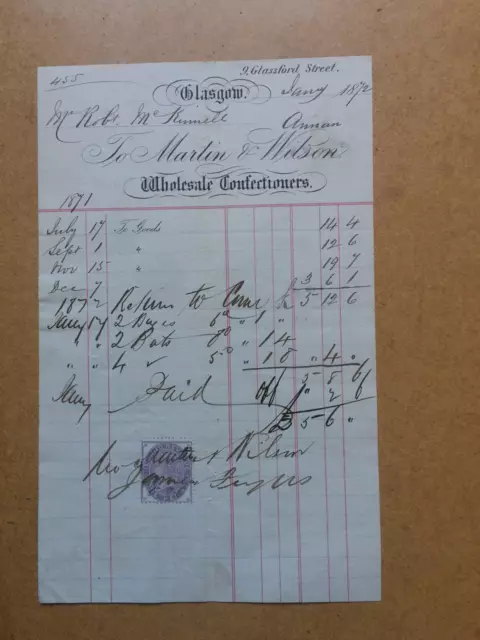 455
9, Glassford Street.
Glasgow. Jany 1872
Mr Robt McKinnell Annan
To Martin & Wilson
Wholesale Confectioners.
1871
July 17 To Goods 14 4
Sept 1 " 12 6
Nov 15 " 19 7
Dec 7 3 6 1
1872 Returns to Come 5 12 6
Jany 2 " 1 "
" 2 " 1 4
" " 4 " 1 8 " 4 "
5 8 6
Jany Paid Off 2 6
£ 5 6 "
Martin & Wilson